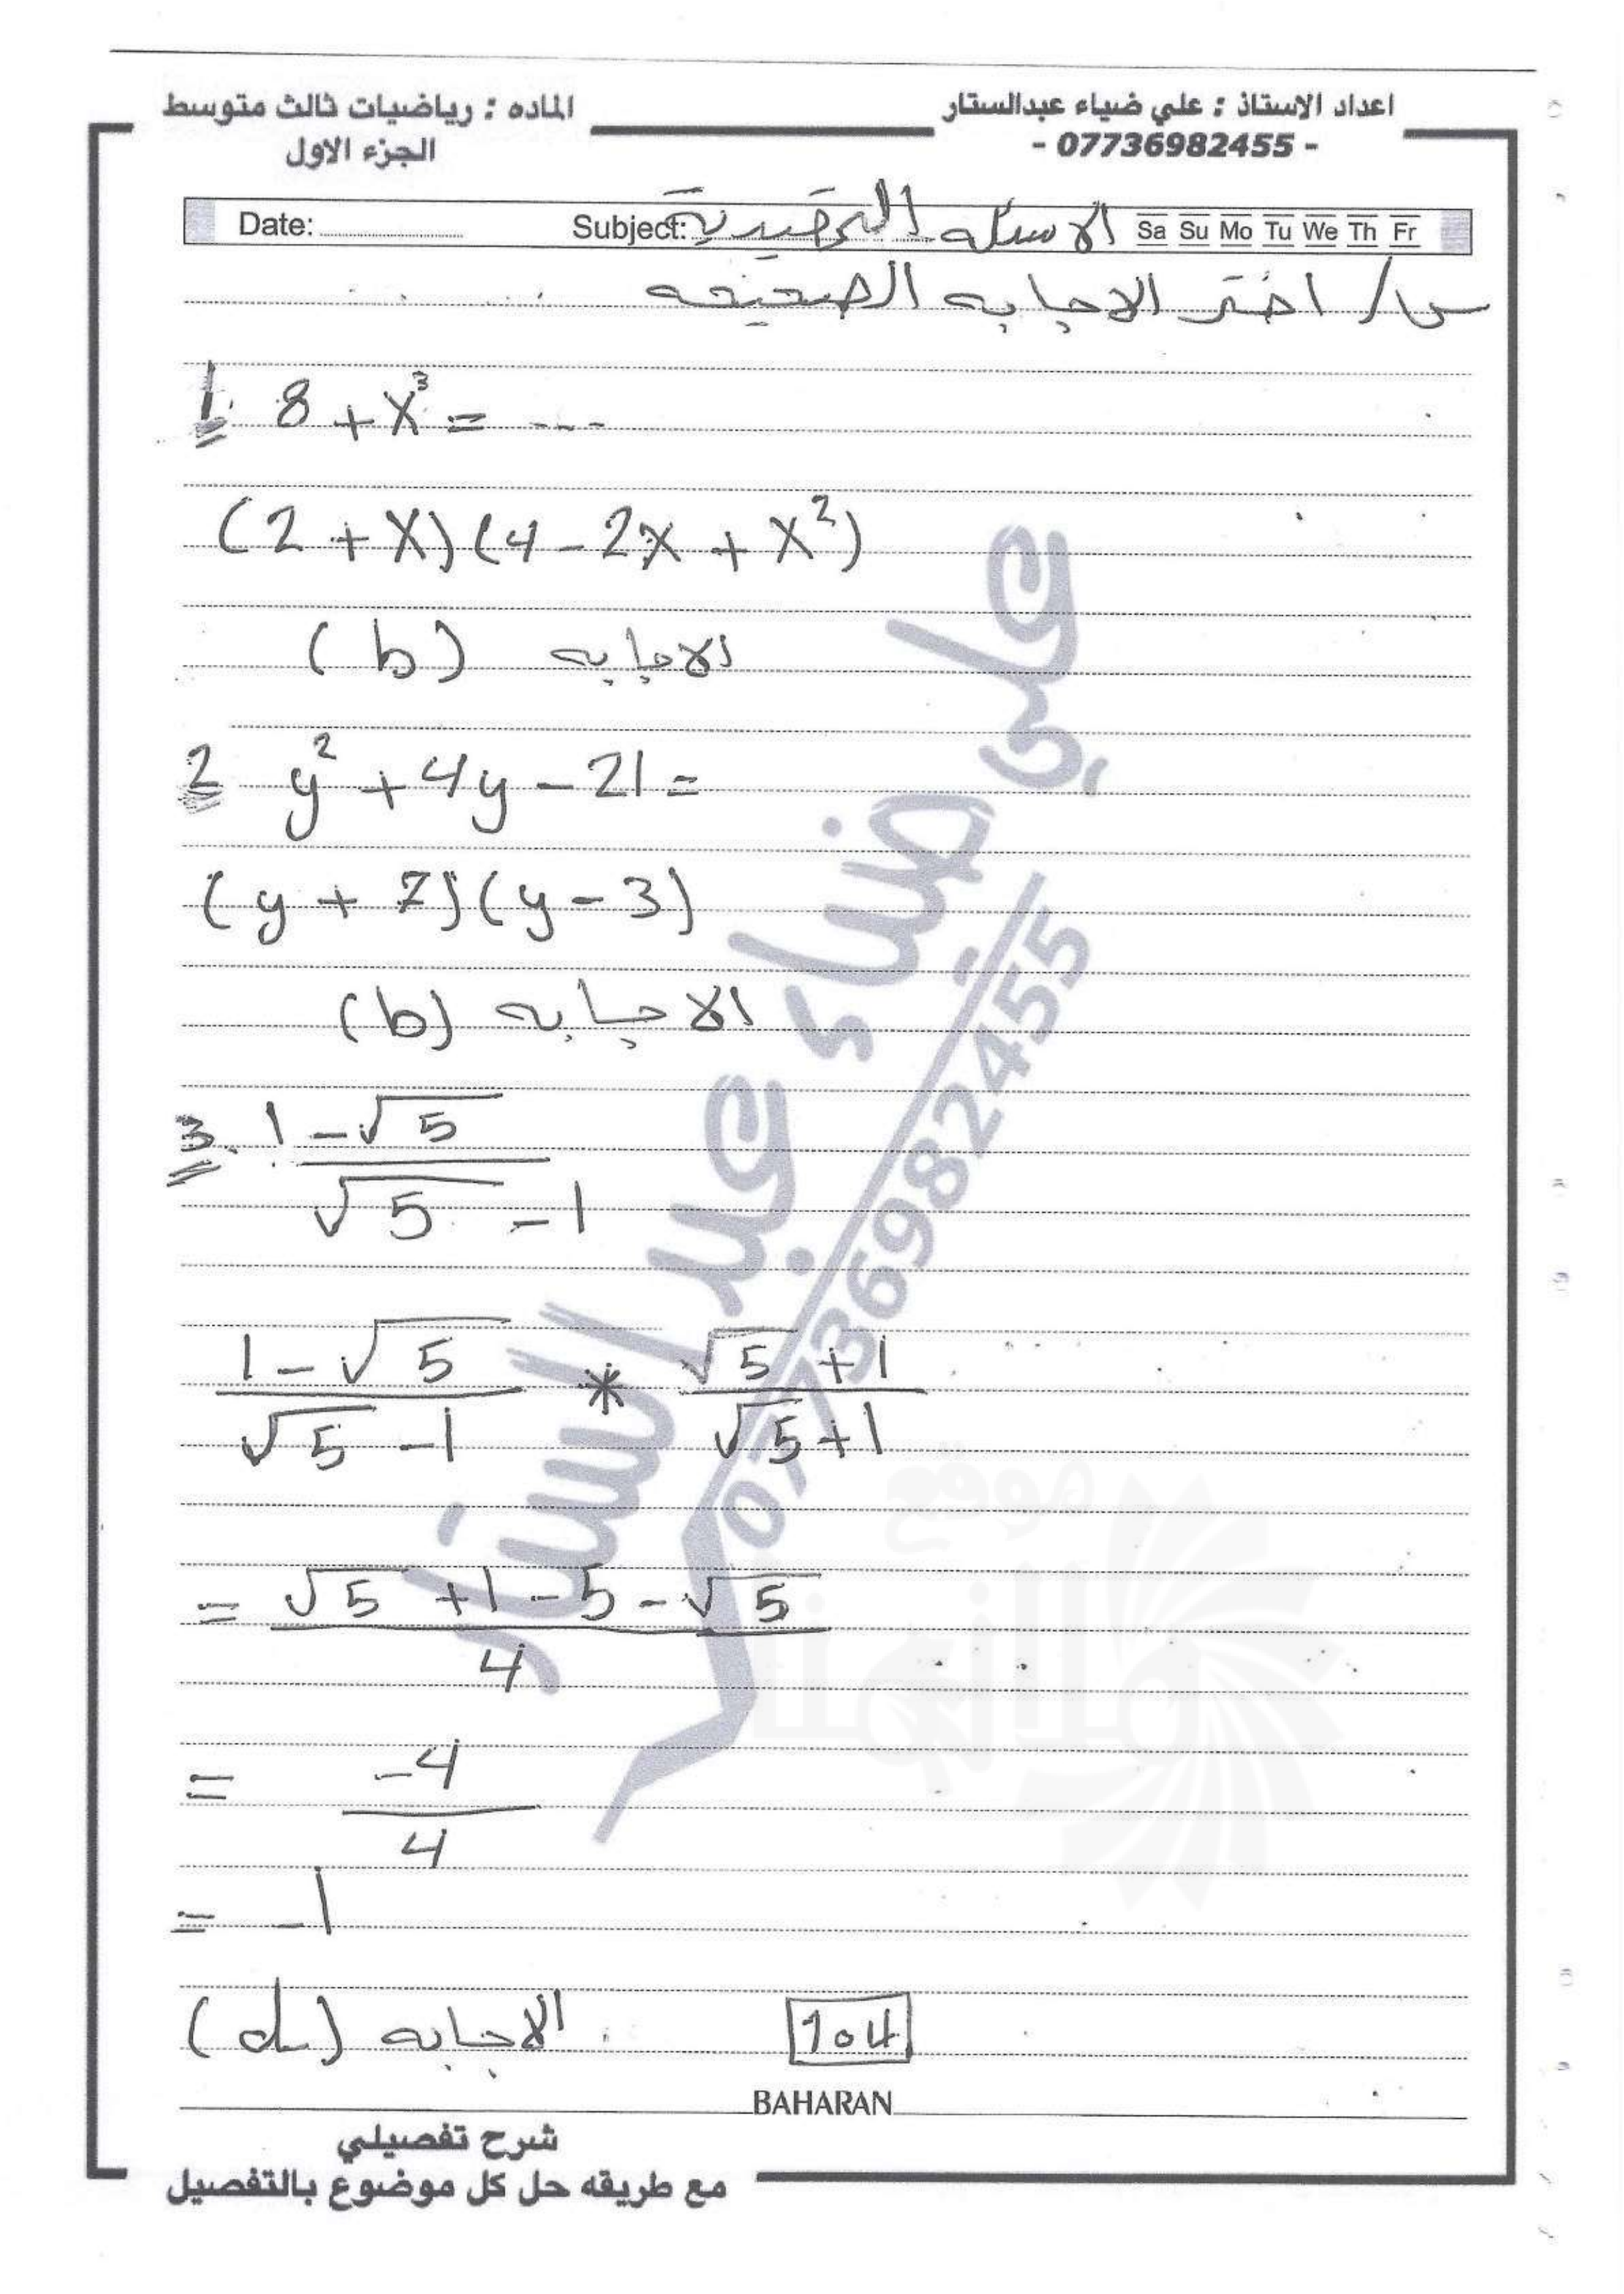 اعداد الاستاذ : علي ضياء عبدالستار
- 07736982455 -
الماده : رياضيات ثالث متوسط
الجزء الاول
Date: Subject: الاسئله التمهيدية Sa Su Mo Tu We Th Fr
س/ اختر الاجابه الصحيحه
1 8 + x³ = ---
(2 + x)(4 - 2x + x²)
الاجابه (b)
2 y² + 4y - 21 =
(y + 7)(y - 3)
الاجابه (b)
3. 1 - √5
√5 - 1
1 - √5 / √5 - 1 * √5 + 1 / √5 + 1
= √5 + 1 - 5 - √5
4
= -4
4
= -1
الاجابه (d)
104
BAHARAN
شرح تفصيلي
مع طريقه حل كل موضوع بالتفصيل
علي ضياء عبد الستار
07736982455
موقع